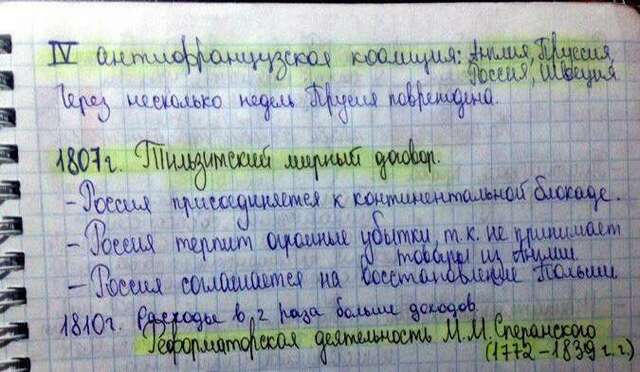 IV антифранцузская коалиция: Англия, Пруссия,
Россия, Швеция
Через несколько недель Прусия повреждена.
1807г. Тильзитский мирный договор.
– Россия присоединяется к континентальной блокаде.
– Россия терпит огромные убытки, т.к. не принимает
товары из Англии
– Россия соглашается на восстановление Польши
1810г. Расходы в 2 раза больше доходов
Реформаторская деятельность М.М.Сперанского
(1772 – 1839 г.г)